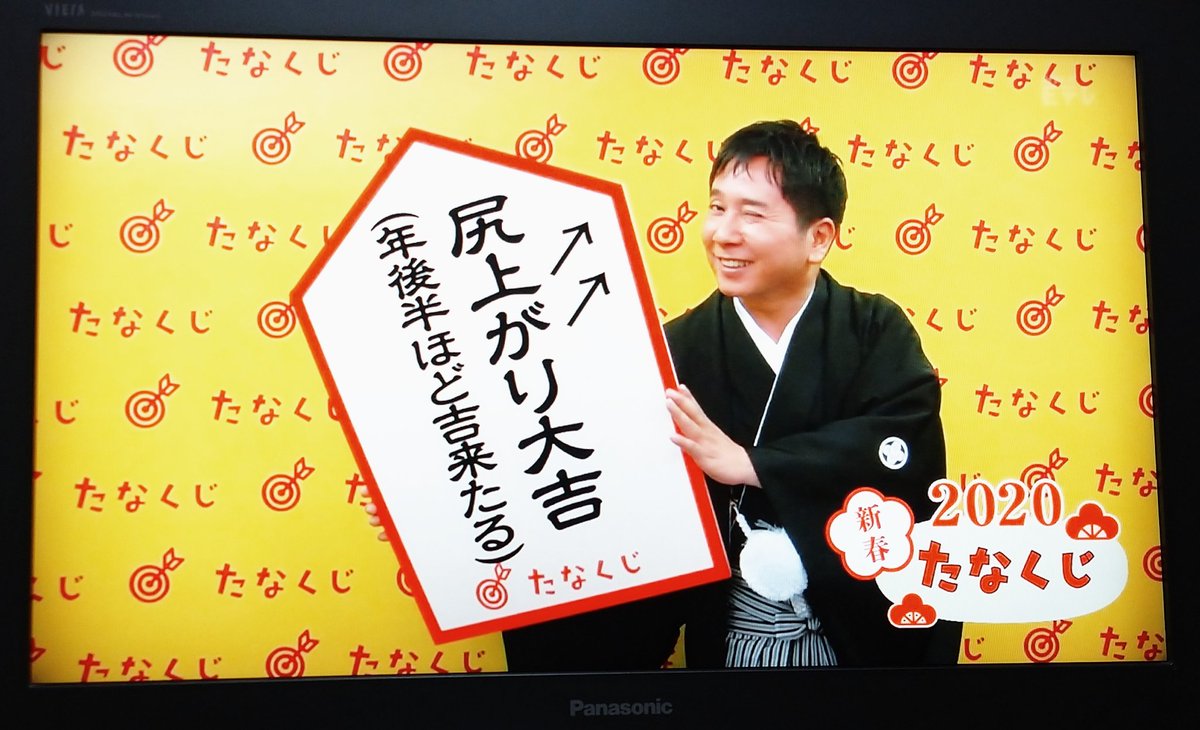 VIERA
たなくじ たなくじ たなくじ たなくじ
たなくじ たな たなくじ たなくじ た
じ たなくじ たなくじ
たなくじ くじ た
じ たなくじ たなくじ
たなくじ た たな
じ たなくじ
たなくじ たなくじ じ た
尻上がり大吉
(年後半ほど吉来たる)
たなくじ
新春
2020
たなくじ
Panasonic